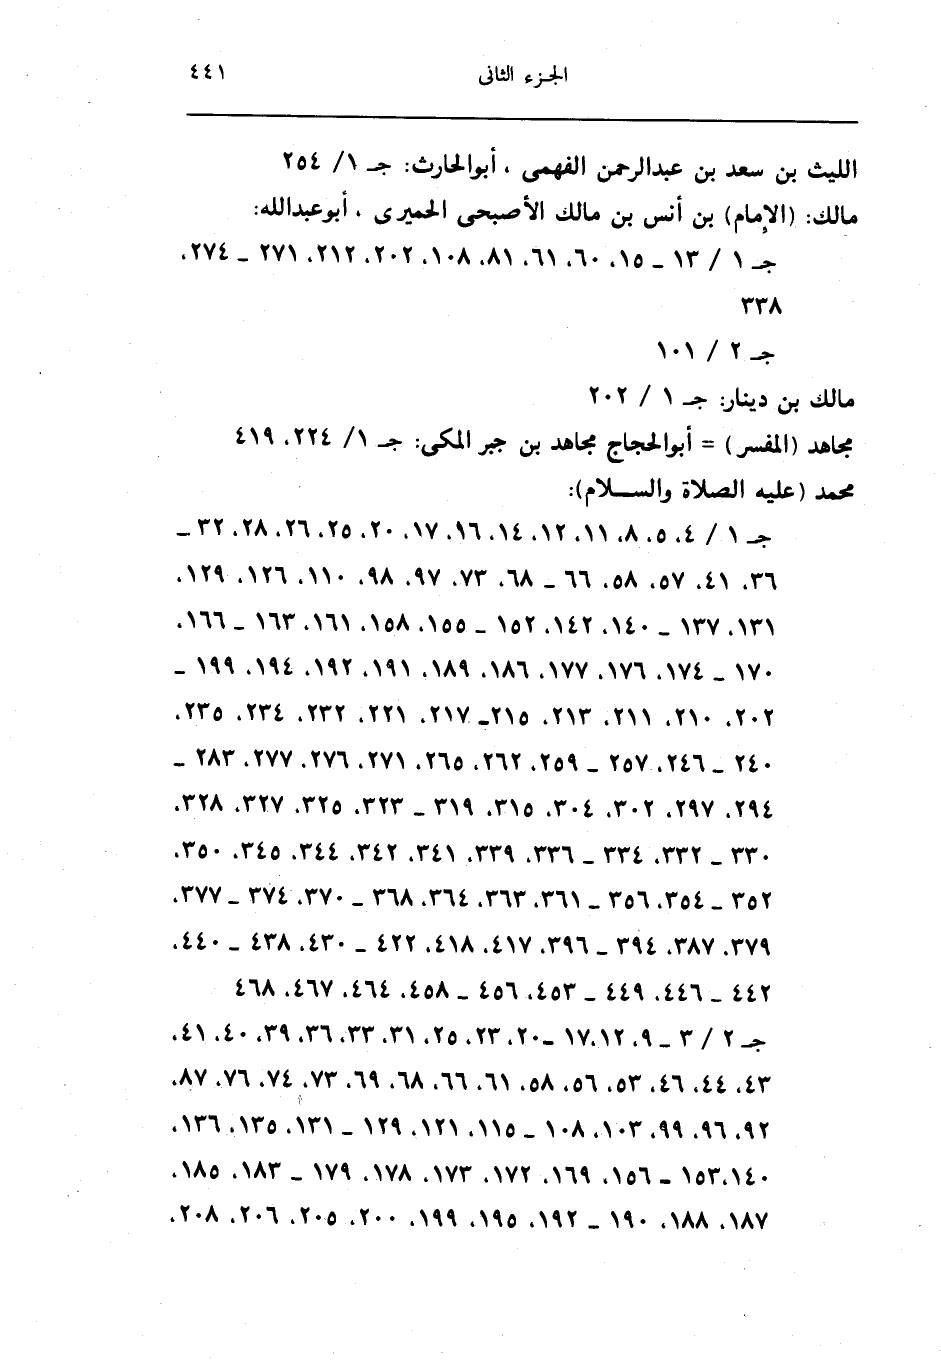 الجزء الثانى ٤٤١
الليث بن سعد بن عبدالرحمن الفهمى ، أبوالحارث: جـ ١/ ٢٥٤
مالك: (الإمام) بن أنس بن مالك الأصبحى الحميرى ، أبوعبدالله:
جـ ١ / ١٣ ـ ١٥، ٦٠، ٦١، ٨١، ١٠٨، ٢٠٢، ٢١٢، ٢٧١ ـ ٢٧٤،
٣٣٨
جـ ٢ / ١٠١
مالك بن دينار: جـ ١ / ٢٠٢
مجاهد (المفسر) = أبوالحجاج مجاهد بن جبر المكى: جـ ١/ ٢٢٤، ٤١٩
محمد (عليه الصلاة والسـلام):
جـ ١ / ٤، ٥، ٨، ١١، ١٢، ١٤، ١٦، ١٧، ٢٠، ٢٥، ٢٦، ٢٨، ٣٢ ـ
٣٦، ٤١، ٥٧، ٥٨، ٦٦ ـ ٦٨، ٧٣، ٩٧، ٩٨، ١١٠، ١٢٦، ١٢٩،
١٣١، ١٣٧ ـ ١٤٠، ١٤٢، ١٥٢ ـ ١٥٥، ١٥٨، ١٦١، ١٦٣ ـ ١٦٦،
١٧٠ ـ ١٧٤، ١٧٦، ١٧٧، ١٨٦، ١٨٩، ١٩١، ١٩٢، ١٩٤، ١٩٩ ـ
٢٠٢، ٢١٠، ٢١١، ٢١٣، ٢١٥ـ ٢١٧، ٢٢١، ٢٣٢، ٢٣٤، ٢٣٥،
٢٤٠ ـ ٢٤٦، ٢٥٧ ـ ٢٥٩، ٢٦٢، ٢٦٥، ٢٧١، ٢٧٦، ٢٧٧، ٢٨٣ ـ
٢٩٤، ٢٩٧، ٣٠٢، ٣٠٤، ٣١٥، ٣١٩ ـ ٣٢٣، ٣٢٥، ٣٢٧، ٣٢٨،
٣٣٠ ـ ٣٣٢، ٣٣٤ ـ ٣٣٦، ٣٣٩، ٣٤١، ٣٤٢، ٣٤٤، ٣٤٥، ٣٥٠،
٣٥٢ ـ ٣٥٤، ٣٥٦ ـ ٣٦١، ٣٦٣، ٣٦٤، ٣٦٨ ـ ٣٧٠، ٣٧٤ ـ ٣٧٧،
٣٧٩، ٣٨٧، ٣٩٤ ـ ٣٩٦، ٤١٧، ٤١٨، ٤٢٢ ـ ٤٣٠، ٤٣٨ ـ ٤٤٠،
٤٤٢ ـ ٤٤٦، ٤٤٩ ـ ٤٥٣، ٤٥٦ ـ ٤٥٨، ٤٦٤، ٤٦٧، ٤٦٨
جـ ٢ / ٣ ـ ٩، ١٢،١٧ ـ٢٠، ٢٣، ٢٥، ٣١، ٣٣، ٣٦، ٣٩، ٤٠، ٤١،
٤٣، ٤٤، ٤٦، ٥٣، ٥٦، ٥٨، ٦١، ٦٦، ٦٨، ٦٩، ٧٣، ٧٤، ٧٦، ٨٧،
٩٢، ٩٦، ٩٩، ١٠٣، ١٠٨ ـ ١١٥، ١٢١، ١٢٩ ـ ١٣١، ١٣٥، ١٣٦،
١٤٠،١٥٣ ـ ١٥٦، ١٦٩، ١٧٢، ١٧٣، ١٧٨، ١٧٩ ـ ١٨٣، ١٨٥،
١٨٧، ١٨٨، ١٩٠ ـ ١٩٢، ١٩٥، ١٩٩، ٢٠٠، ٢٠٥، ٢٠٦، ٢٠٨،